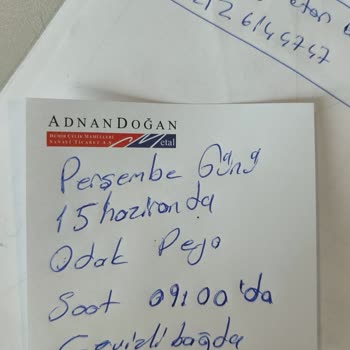 6144747
ADNAN DOĞAN
DEMİR ÇELİK MAMÜLLERİ
SANAYİ TİCARET A.Ş.
etal
Perşembe Günü
15 haziranda
Odak Pejo
Saat 09:00'da
Cevizlibağda